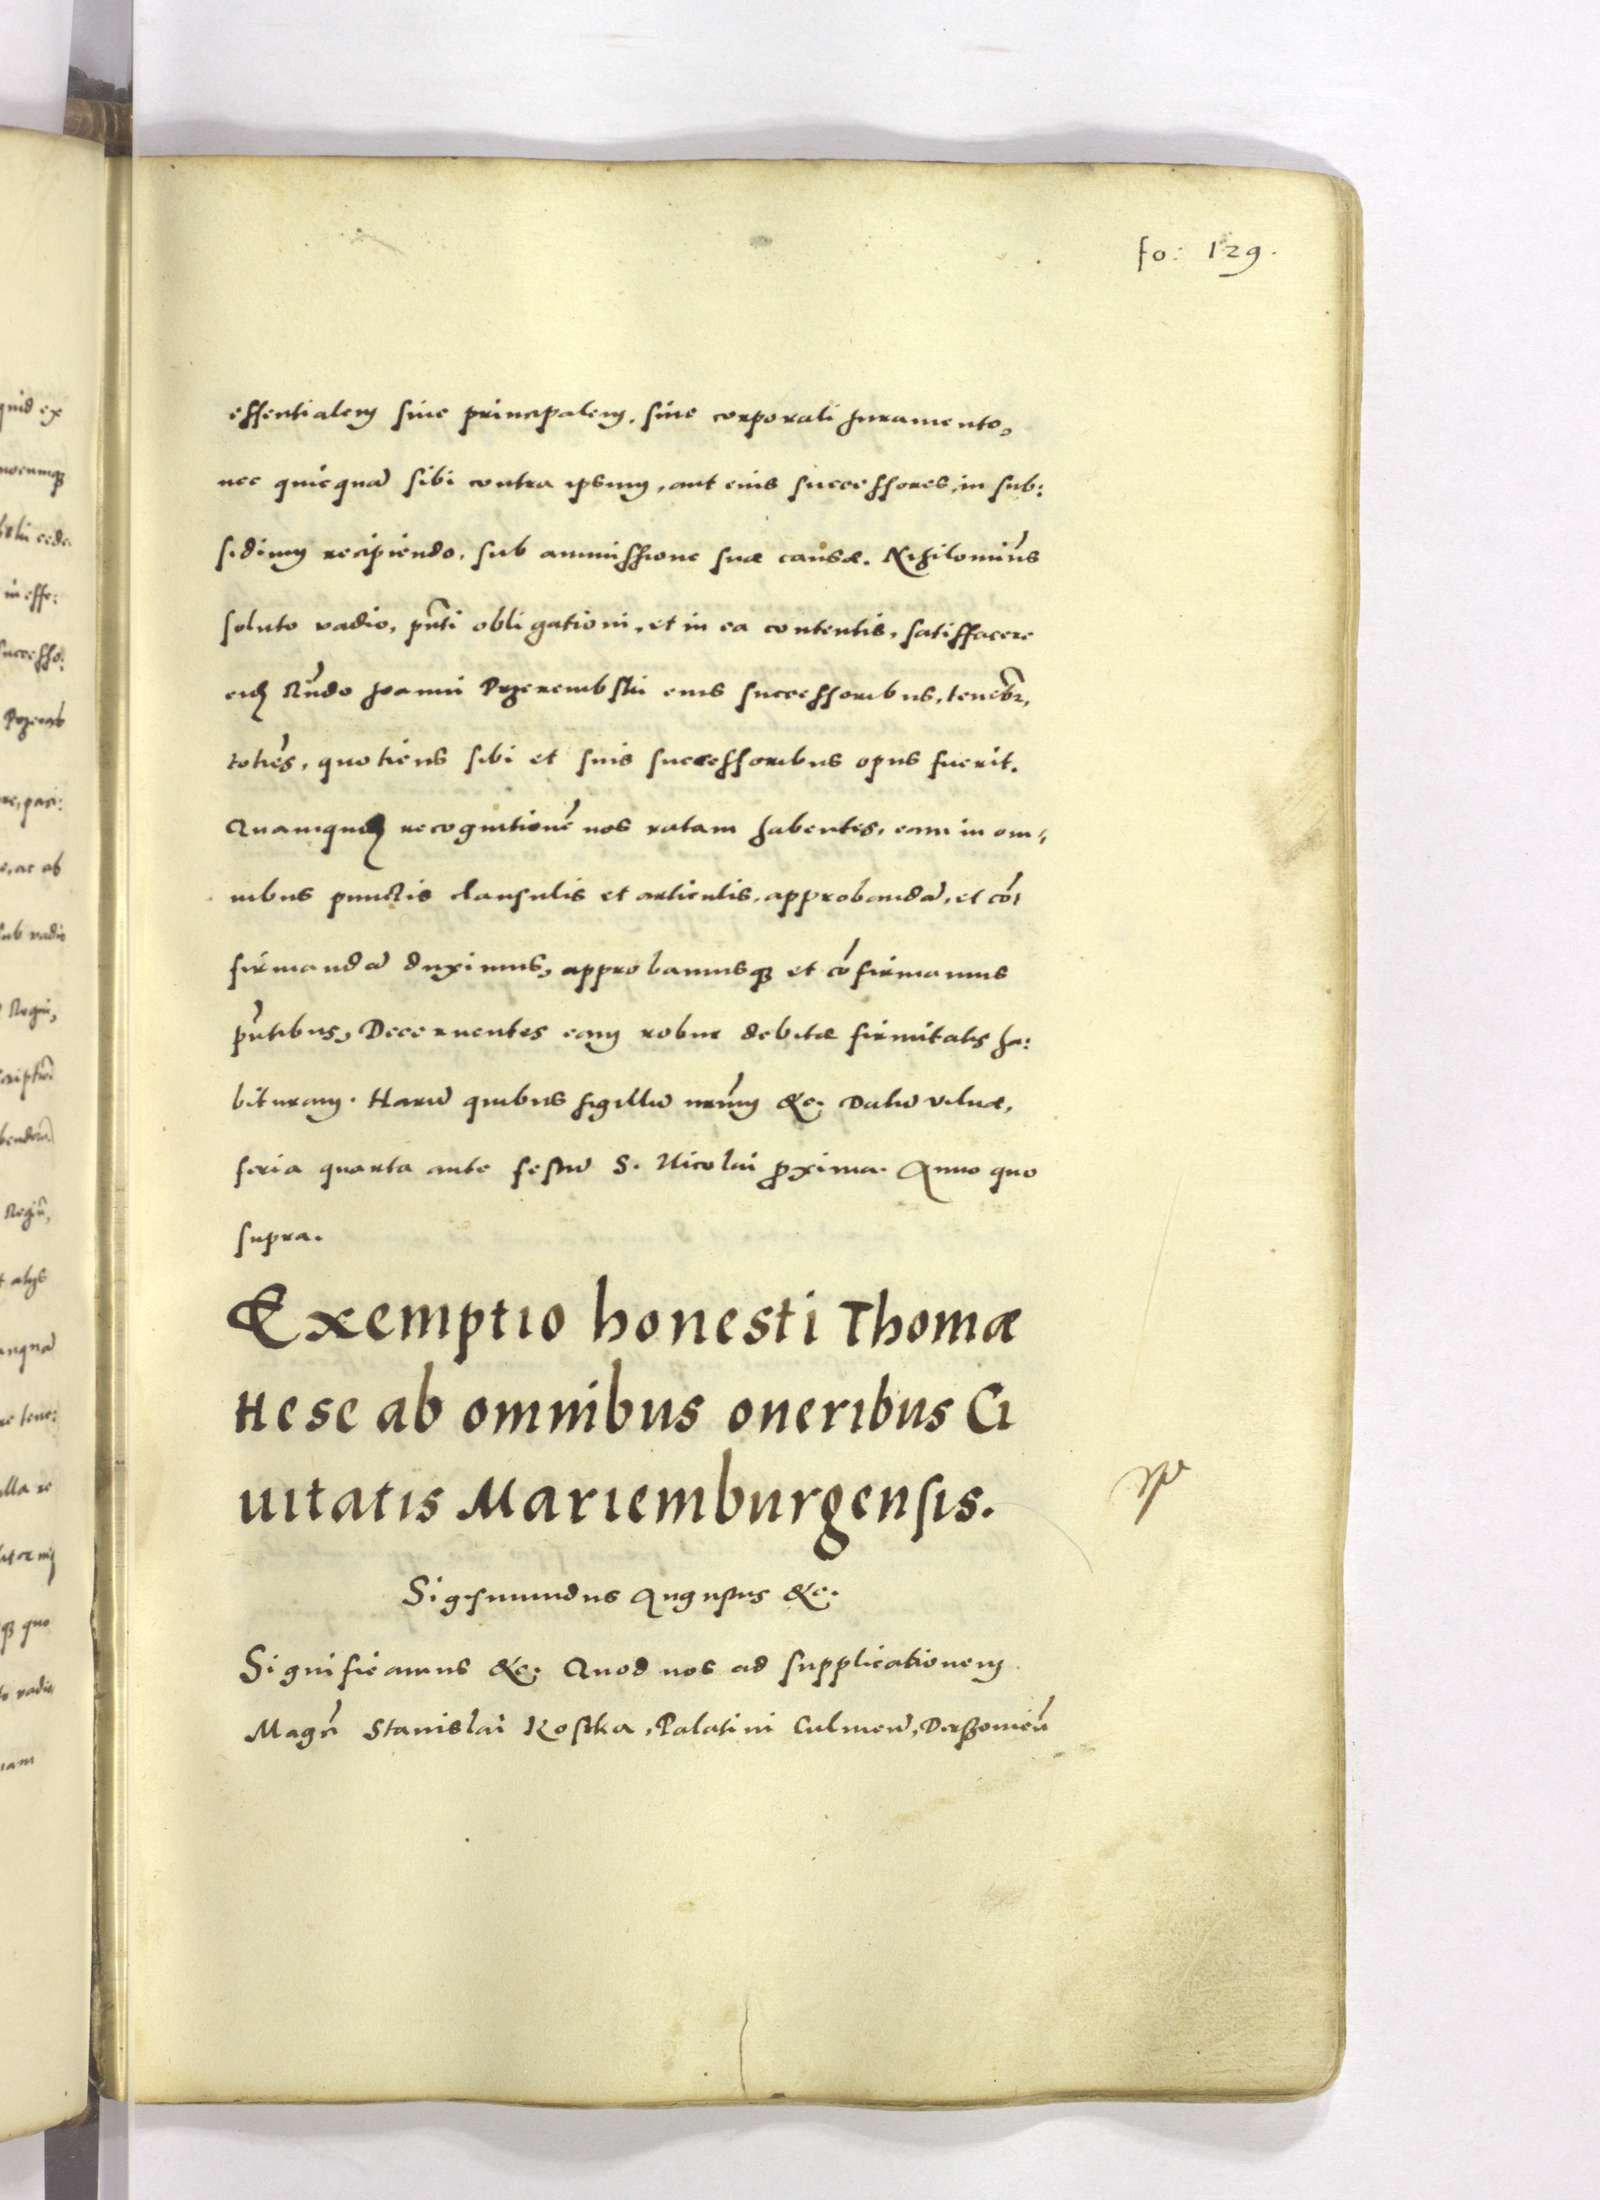 fo: 129.
essentialem siue principalem, siue corporali Juramento,
nec quicquã sibi contra ipsum, aut eius successores, in sub:
sidium recipiendo, sub ammissione suæ causæ. Nihilominús
soluto vadio, pñti obligationi, et in ea contentis, satisfacere
Rñdo Joanni Przerembskii eius successoribus, tenebr̃,
toties, quotiens sibi et suis successoribus opus fuerit.
recognitionẽ nos ratam habentes, eam in om-
nibus punctis clausulis et articulis, approbandã, et cõ-
firmandã duximus, approbamusq3 et cõfirmamus
pñtibus, Decernentes eam robur debitæ firmitatis ha:
bituram. Harũ quibus sigillũ nrũm &c. Datũ Vilnæ,
feria quarta ante festũ S. Nicolai ꝓxima. Anno quo
supra.
Exemptio honesti Thomæ
Hese ab omnibus oneribus Ci
uitatis Mariemburgensis.
Sigismundus Augustus &c.
Significamus &c. Quod nos ad supplicationem
Magci Stanislai Kostka, Palatini Culmeñ,